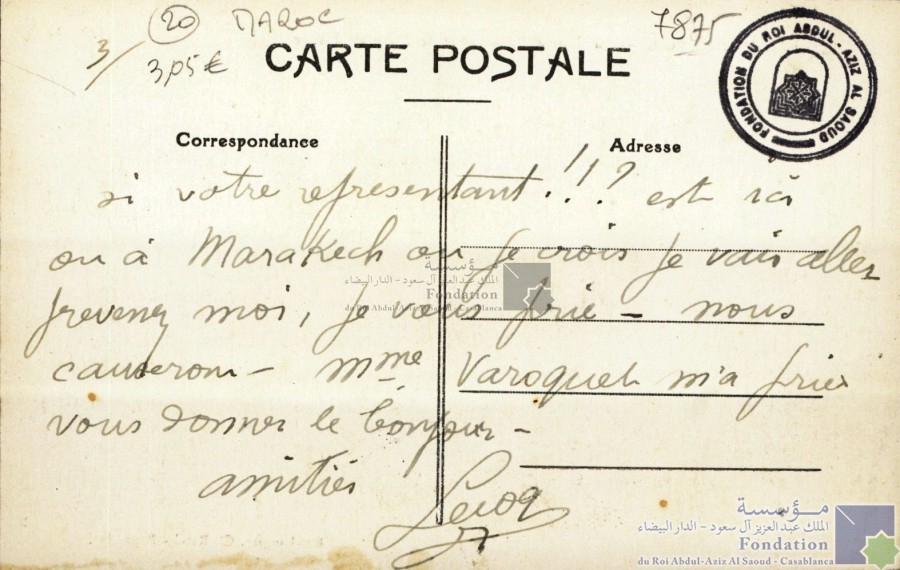 20 MAROC
7875
3/
3,05 €
CARTE POSTALE
FONDATION DU ROI ABDUL-AZIZ AL SAOUD
Correspondance
Adresse
si votre représentant!!? est ici
ou à Marakech ou je crois je vais aller
prevenez moi, je vous prie – nous
causerons – Mme Varoquet m'a prié
vous donner le bonjour –
amitiés
Leroy
مؤسسة
الملك عبد العزيز آل سعود - الدار البيضاء
Fondation
du Roi Abdul-Aziz Al Saoud - Casablanca
مؤسسة
الملك عبد العزيز آل سعود - الدار البيضاء
Fondation
du Roi Abdul-Aziz Al Saoud - Casablanca